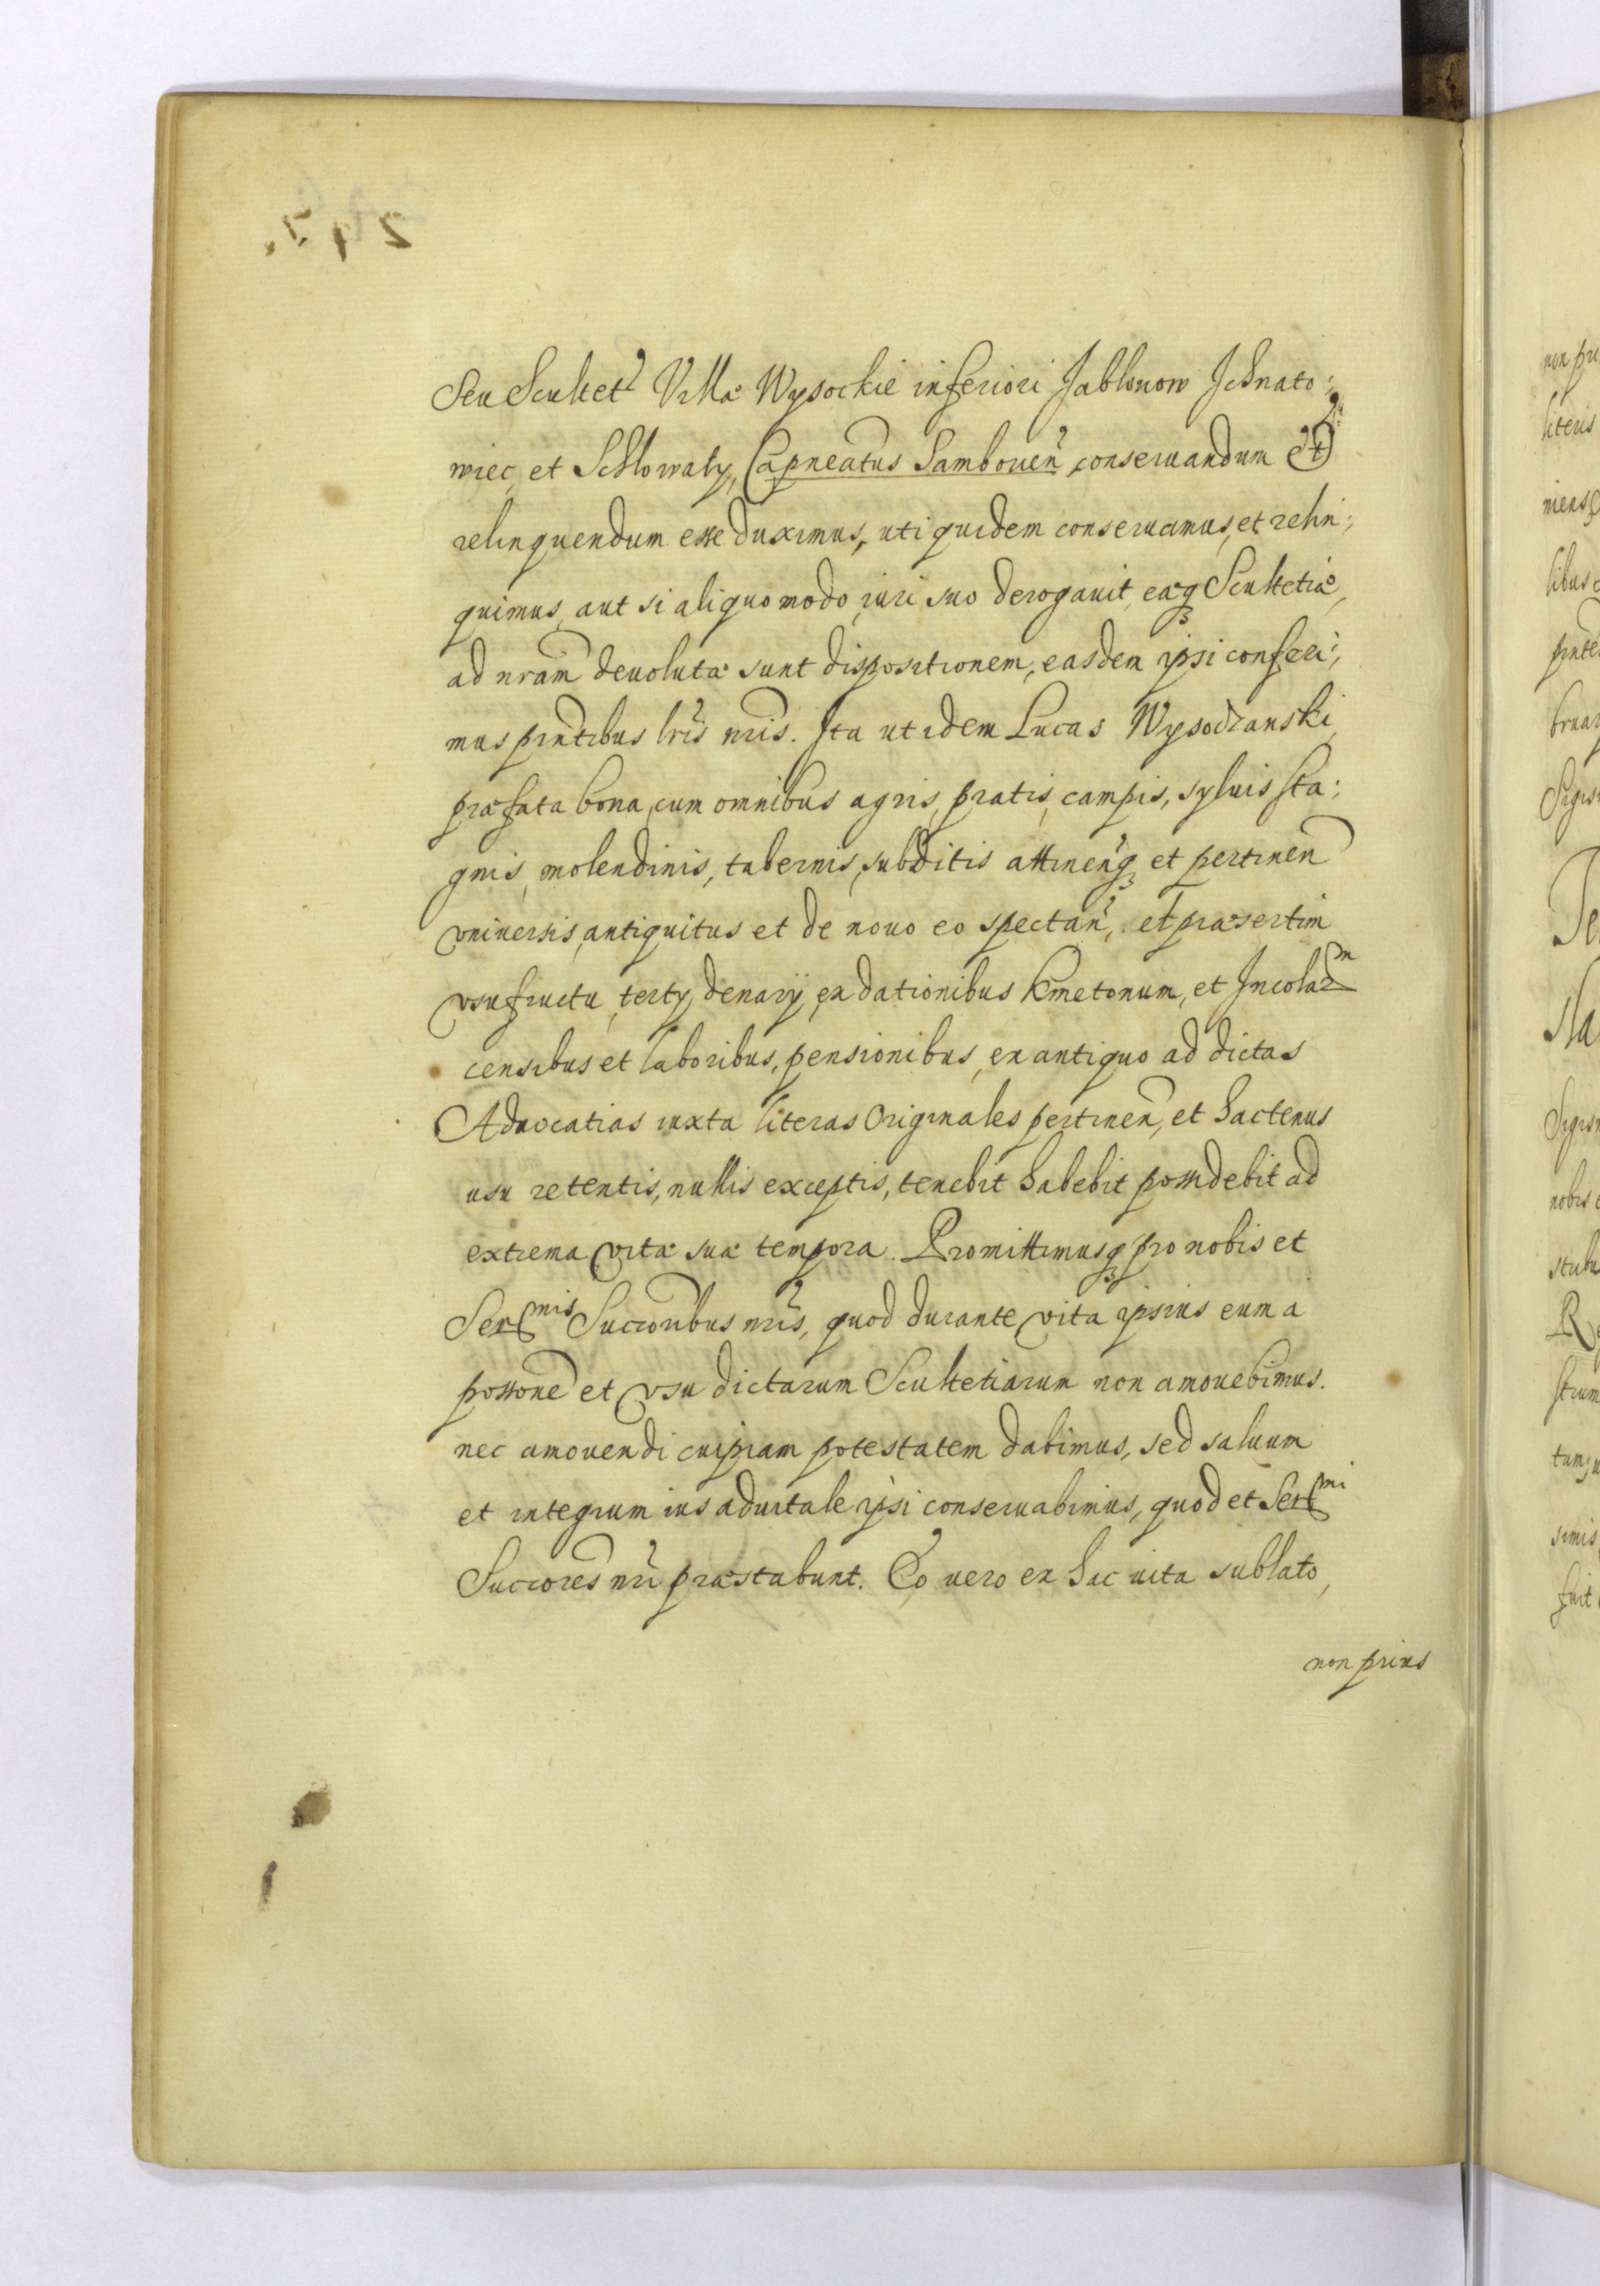 Seu Scultet Villæ Wysockie inferiori Jablonow Jchnato:
wiec, et Schlowaty, Capneatus Samborien conseruandum et
relinquendum esse duximus, uti quidem conseruamus, et relin:
quimus, aut si aliquo modo iuri suo derogauit, eaq Scultetiæ,
ad nram deuolutæ sunt dispositionem, easdem ipsi conferi:
mus pntibus lris nris. Ita ut idem Lucas Wysoczanski
præfata bona, cum omnibus agris, pratis, campis, syluis sta:
gnis, molendinis, tabernis, subditis attinenq et pertinen
vniuersis, antiquitus et de nouo eo spectan, et præsertim
vsufructu, terty denarij, ex dationibus Kmetonum, et Incolarm
censibus et laboribus, pensionibus, ex antiquo ad dictas
Aduocatias iuxta literas Originales pertinen, et hactenus
usu retentis, nullis exceptis, tenebit habebit possidebit ad
extrema vitæ suæ tempora. Promittimusq pro nobis et
Sermis Succoribus nris, quod durante vita ipsius eum a
possone et vsu dictarum Scultetiarum non amouebimus.
nec amouendi cuipiam potestatem dabimus, sed saluum
et integrum ius aduitale ipsi conseruabimus, quod et Sermi
Succores nri præstabunt. Eo uero ex hac uita sublato,
non prius